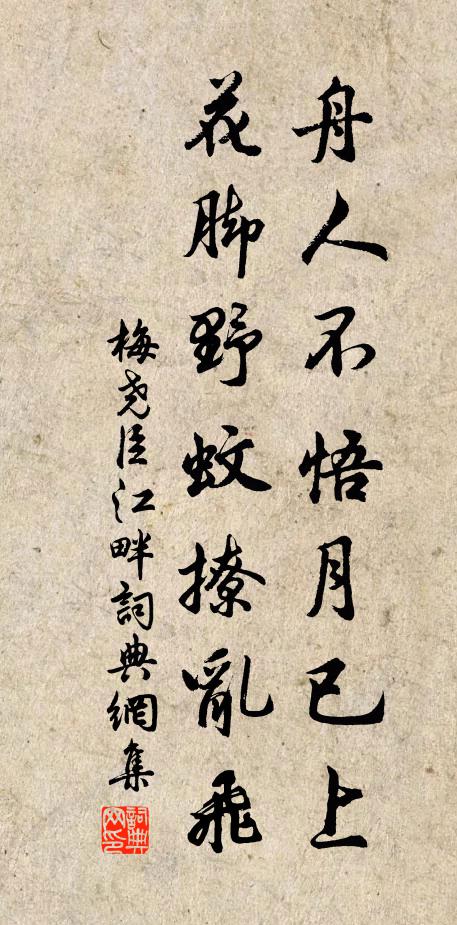 舟人不悟月已上
花脚野蚊撩亂飛
梅尧臣江畔詞典網集
詞典網印